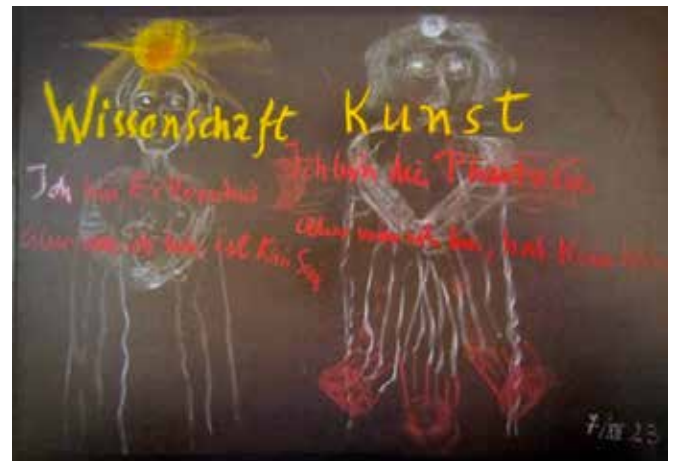 Wissenschaft Kunst
Ich bin Erkenntnis
aber was ich bin, ist kein Sein
Ich bin die Phantasie
aber was ich bin, hat kein
7/XII 23